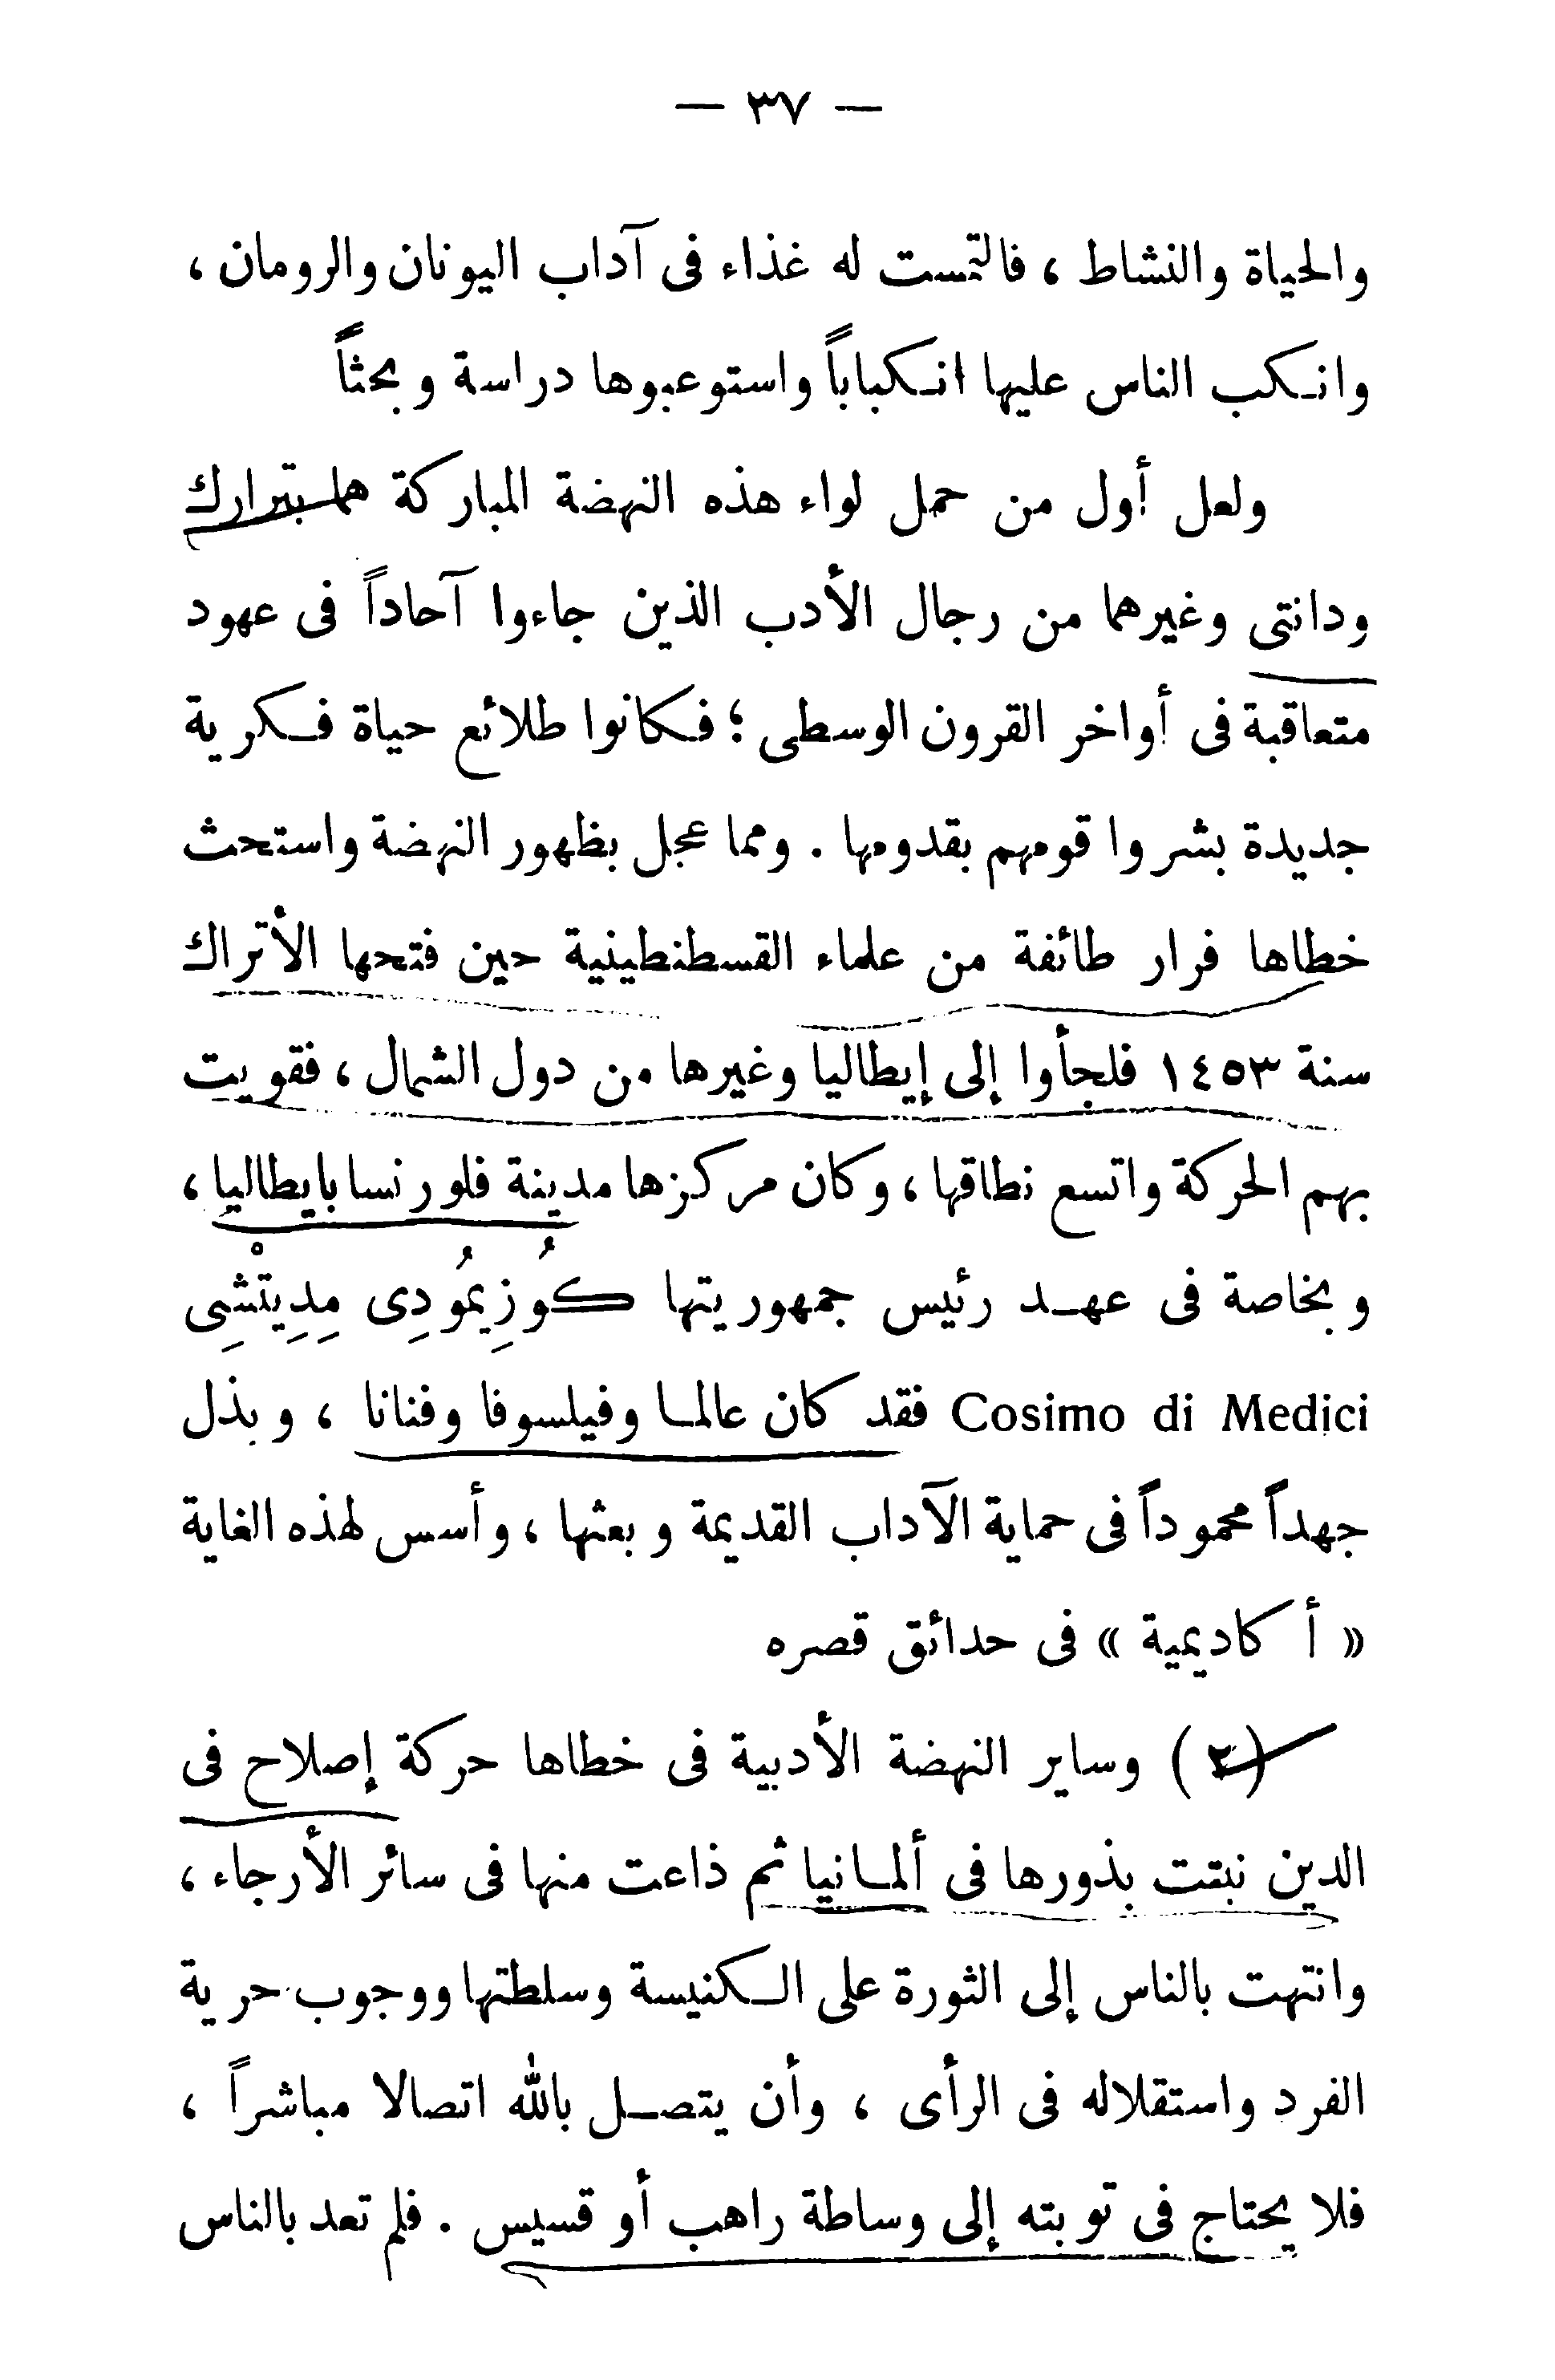 — ٣٧ —
والحياة والنشاط ، فالتمست له غذاء فى آداب اليونان والرومان ،
وانكب الناس عليها انكباباً واستوعبوها دراسة وبحثاً
ولعل أول من حمل لواء هذه النهضة المباركة هما بترارك
ودانتى وغيرهما من رجال الأدب الذين جاءوا آحاداً فى عهود
متعاقبة فى أواخر القرون الوسطى ؛ فكانوا طلائع حياة فكرية
جديدة بشروا قومهم بقدومها . ومما عجل بظهور النهضة واستحث
خطاها فرار طائفة من علماء القسطنطينية حين فتحها الأتراك
سنة ١٤٥٣ فلجأوا إلى إيطاليا وغيرها من دول الشمال ، فقويت
بهم الحركة واتسع نطاقها ، وكان مركزها مدينة فلورنسا بايطاليا ،
وبخاصة فى عهد رئيس جمهوريتها كُوزِيمُو دِى مِدِيتْشِى
Cosimo di Medici فقد كان عالما وفيلسوفا وفنانا ، وبذل
جهداً محموداً فى حماية الآداب القديمة وبعثها ، وأسس لهذه الغاية
« أكاديمية » فى حدائق قصره
(٢) وساير النهضة الأدبية فى خطاها حركة إصلاح فى
الدين نبتت بذورها فى ألمانيا ثم ذاعت منها فى سائر الأرجاء ،
وانتهت بالناس إلى الثورة على الكنيسة وسلطتها ووجوب حرية
الفرد واستقلاله فى الرأى ، وأن يتصل بالله اتصالا مباشراً ،
فلا يحتاج فى توبته إلى وساطة راهب أو قسيس . فلم تعد بالناس